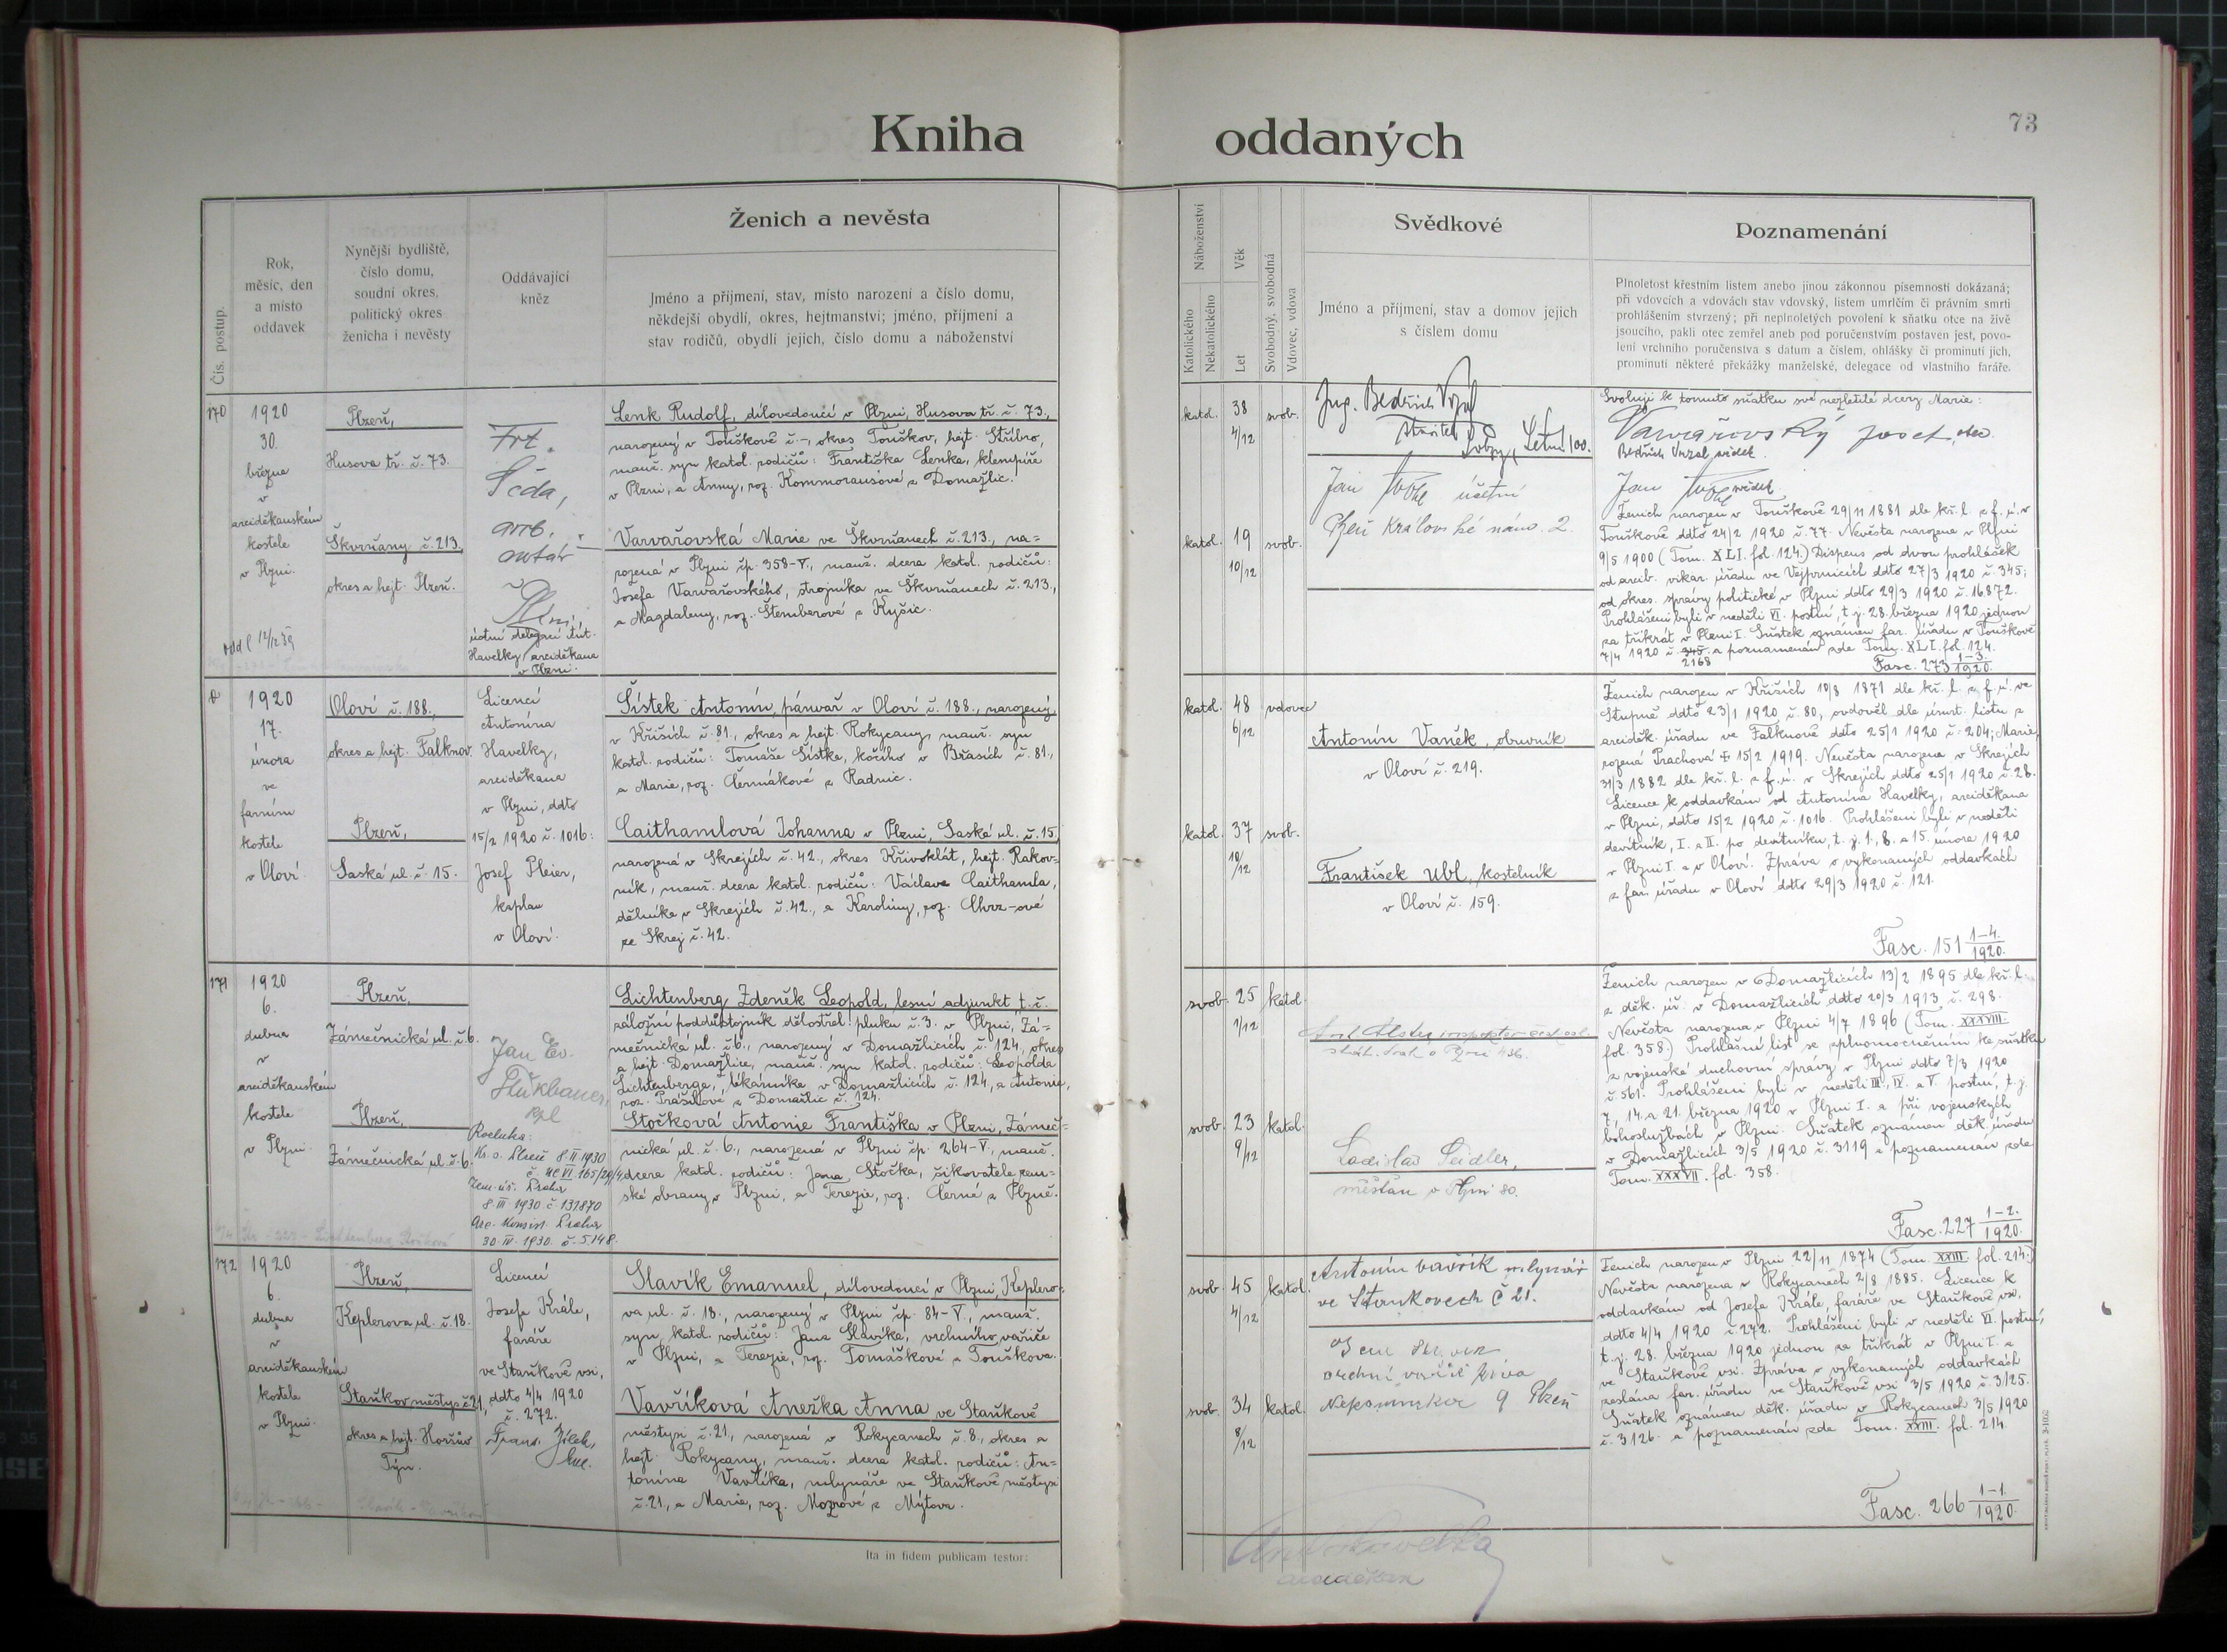 Kniha
oddaných
73
Čís. postup.
Rok,
měsíc, den
a místo
oddavek
Nynější bydliště,
číslo domu,
soudní okres,
politický okres
ženicha i nevěsty
Oddávající
kněz
Ženich a nevěsta
Jméno a příjmení, stav, místo narození a číslo domu,
někdejší obydlí, okres, hejtmanství; jméno, příjmení a
stav rodičů, obydlí jejich, číslo domu a náboženství
Náboženství
Katolického
Nekatolického
Věk
Let
Svobodný, svobodná
Vdovec, vdova
Svědkové
Jméno a příjmení, stav a domov jejich
s číslem domu
Poznamenání
Plnoletost křestním listem anebo jinou zákonnou písemností dokázaná;
při vdovcích a vdovách stav vdovský, listem umrlčím či právním smrti
prohlášením stvrzený; při neplnoletých povolení k sňatku otce na živě
jsoucího, pakli otec zemřel aneb pod poručenstvím postaven jest, povo-
lení vrchního poručenstva s datum a číslem, ohlášky či prominutí jich,
prominutí některé překážky manželské, delegace od vlastního faráře.
170
1920
30.
března
v
arciděkanském
kostele
v Plzni.
Plzeň,
Husova tř. č. 73.
Škvrňany č. 213,
okres a hejt. Plzeň.
Frt.
Šeda,
Plzni,
Havelky, arciděkana
v Plzni.
Lenk Rudolf, dílovedoucí v Plzni, Husova tř. č. 73,
narozený v Touškově č. -, okres Touškov, hejt. Stříbro,
manž. syn katol. rodičů: Františka Lenka, klempíře
v Plzni, a Anny, roz. Kommorausové z Domažlic.
Varvařovská Marie ve Škvrňanech č. 213, na-
rozená v Plzni čp. 358-V., manž. dcera katol. rodičů:
Josefa Varvařovského, strojníka ve Škvrňanech č. 213,
a Magdaleny, roz. Štemberové z Kyšic.
katol.
38
4/12
svob.
katol.
19
10/12
svob.
Ing. Bedřich
Letná 100.
Jan
účetní
Plzeň Královské nám. 2.
Svoluji ke tomuto sňatku své nezletilé dcery Marie:
Varvařovský Josef, otec.
Bedřich Vrzal svědek.
Jan
svědek
Ženich narozen v Touškově 29/11 1881 dle kř. l. z f. ú. v
Touškově ddto 24/2 1920 č. 77. Nevěsta narozena v Plzni
9/5 1900 (Tom. XLI. fol. 124.) Dispens od dvou prohlášek
od arcib. vikar. úřadu ve Vejprnicích ddto 27/3 1920 č. 345;
od okres. správy politické v Plzni ddto 29/3 1920 č. 16872.
Prohlášeni byli v neděli VI. postní t. j. 28. března 1920 jednou
za třikrát v Plzni I. Sňatek oznámen far. úřadu v Touškově
7/4 1920 č. 345. a poznamenán zde Tom. XLI. fol. 124.
2168
Fasc. 273 1-3/1920.
1920
17.
února
ve
farním
kostele
v Oloví
Oloví č. 188.,
okres a hejt. Falknov.
Plzeň,
Saská ul. č. 15.
Licencí
Antonína
Havelky,
arciděkana
v Plzni, ddto
15/2 1920 č. 1016:
Josef Pleier,
kaplan
v Oloví.
Šístek Antonín, pánvař v Oloví č. 188., narozený
v Křiších č. 81., okres a hejt. Rokycany, manž. syn
katol. rodičů: Tomáše Šístka, kočího v Břasích č. 81.,
a Marie, roz. Čermákové z Radnic.
Caithamlová Johanna v Plzni, Saská ul. č. 15,
narozená v Skrejích č. 42., okres Křivoklát, hejt. Rakov-
ník, manž. dcera katol. rodičů: Václava Caithamla,
dělníka v Skrejích č. 42., a Karoliny, roz. Chrz-ové
ze Skrej č. 42.
katol.
48
6/12
vdovec
katol.
37
10/12
svob.
Antonín Vaněk, obuvník
v Oloví č. 219.
František Ubl, kostelník
v Oloví č. 159.
Ženich narozen v Křišich 10/8 1871 dle kř. l. z f. ú. ve
Stupně ddto 23/1 1920 č. 80, ovdověl dle úmrt. listu z
arciděk. úřadu ve Falknově ddto 25/1 1920 č. 204; Marie,
rozená Prachová ✝ 15/2 1919. Nevěsta narozena v Skrejích
31/3 1882 dle kř. l. z f. ú. v Skrejích ddto 25/1 1920 č. 28.
Licence k oddavkám od Antonína Havelky, arciděkana
v Plzni, ddto 15/2 1920 č. 1016. Prohlášeni byli v neděli
devítník, I. a II. po devítníku, t. j. 1., 8. a 15. února 1920
v Plzni I. a v Oloví. Zpráva o vykonaných oddavkách
z far. úřadu v Oloví ddto 29/3 1920 č. 121.
Fasc. 151 1-4./1920.
171
1920
6.
dubna
v
arciděkanském
kostele
v Plzni.
Plzeň,
Zámečnická ul. č. 6.
Plzeň,
Zámečnická ul. č. 6.
Jan Ev.
kpl
Rozluka:
Kr. s. Plzeň 8. II. 1930
Zem. úř. Praha
8. III. 1930. č. 131870
Arc. konsist. Praha
30. IV. 1930. č. 5148.
Lichtenberg Zdeněk Leopold, lesní adjunkt t. č.
záložní poddůstojník dělostřel. pluku č. 3. v Plzni, Zá-
mečnická ul. č. 6., narozený v Domažlicích č. 124, okres
a hejt. Domažlice, manž. syn katol. rodičů: Leopolda
Lichtenberga, lékárníka v Domažlicích č. 124, a Antonie,
roz. Prášilové z Domažlic č. 124.
Stočková Antonie Františka v Plzni, Zámeč-
nická ul. č. 6., narozená v Plzni čp. 264-V., manž.
dcera katol. rodičů: Jana Stočka, šikovatele zem-
ské obrany v Plzni, a Terezie, roz. Černé z Plzně.
svob.
25
1/12
katol.
svob.
23
9/12
katol.
Ladislav Seidler,
měšťan v Plzni 80.
Ženich narozen v Domažlicích 13/2 1895 dle kř. l.
z děk. úř. v Domažlicích ddto 20/3 1913 č. 298.
Nevěsta narozena v Plzni 4/7 1896 (Tom. XXXVIII.
fol. 358.) Prohlašní list se zplnomocněním ke sňatku
z vojenské duchovní správy v Plzni ddto 7/3 1920
č. 561. Prohlášeni byli v neděli III., IV. a V. postní, t. j.
7., 14. a 21. března 1920 v Plzni I. a při vojenských
bohoslužbách v Plzni. Sňatek oznámen děk. úřadu
v Domažlicích 3/5 1920 č. 3119 a poznamenán zde
Tom. XXXVII. fol. 358.
Fasc. 227 1-2./1920.
172
1920
6.
dubna
v
arciděkanském
kostele
v Plzni.
Plzeň,
Keplerova ul. č. 18.
Staňkov městys č. 21,
okres a hejt. Horšův
Týn.
Licencí
Josefa Krále,
faráře
ve Staňkově vsi,
ddto 4/4 1920
č. 272.
Slavík Emanuel, dílovedoucí v Plzni, Keplero-
va ul. č. 18., narozený v Plzni čp. 84-V., manž.
syn katol. rodičů: Jana Slavíka, vrchního vařiče
v Plzni, a Terezie, roz. Tomáškové z Touškova.
Vavříková Anežka Anna ve Staňkově
městysi č. 21., narozená v Rokycanech č. 8., okres a
hejt. Rokycany, manž. dcera katol. rodičů: An-
tonína Vavříka, mlynáře ve Staňkově městysi
č. 21., a Marie, roz. Mozrové z Mýtova.
Ita in fidem publicam testor:
svob.
45
4/12
katol.
svob.
34
8/12
katol.
Antonín vavřík mlynář
ve Stankovech č 21.
vrchní vařič piva
Nepomucka 9 Plzeň
Ženich narozen v Plzni 22/11 1874 (Tom. XXIII. fol. 214.)
Nevěsta narozena v Rokycanech 2/8 1885. Licence k
oddavkám od Josefa Krále, faráře ve Staňkově vsi,
ddto 4/4 1920 č. 272. Prohlášeni byli v neděli VI. postní,
t. j. 28. března 1920 jednou za třikrát v Plzni I. a
ve Staňkově vsi. Zpráva o vykonaných oddavkách
zaslána far. úřadu ve Staňkově vsi 3/5 1920 č. 3125.
Sňatek oznámen děk. úřadu v Rokycanech 3/5 1920
č. 3126. a poznamenán zde Tom. XXIII. fol. 214.
Fasc. 266 1-1./1920.
Ant. Havelka
arciděkan